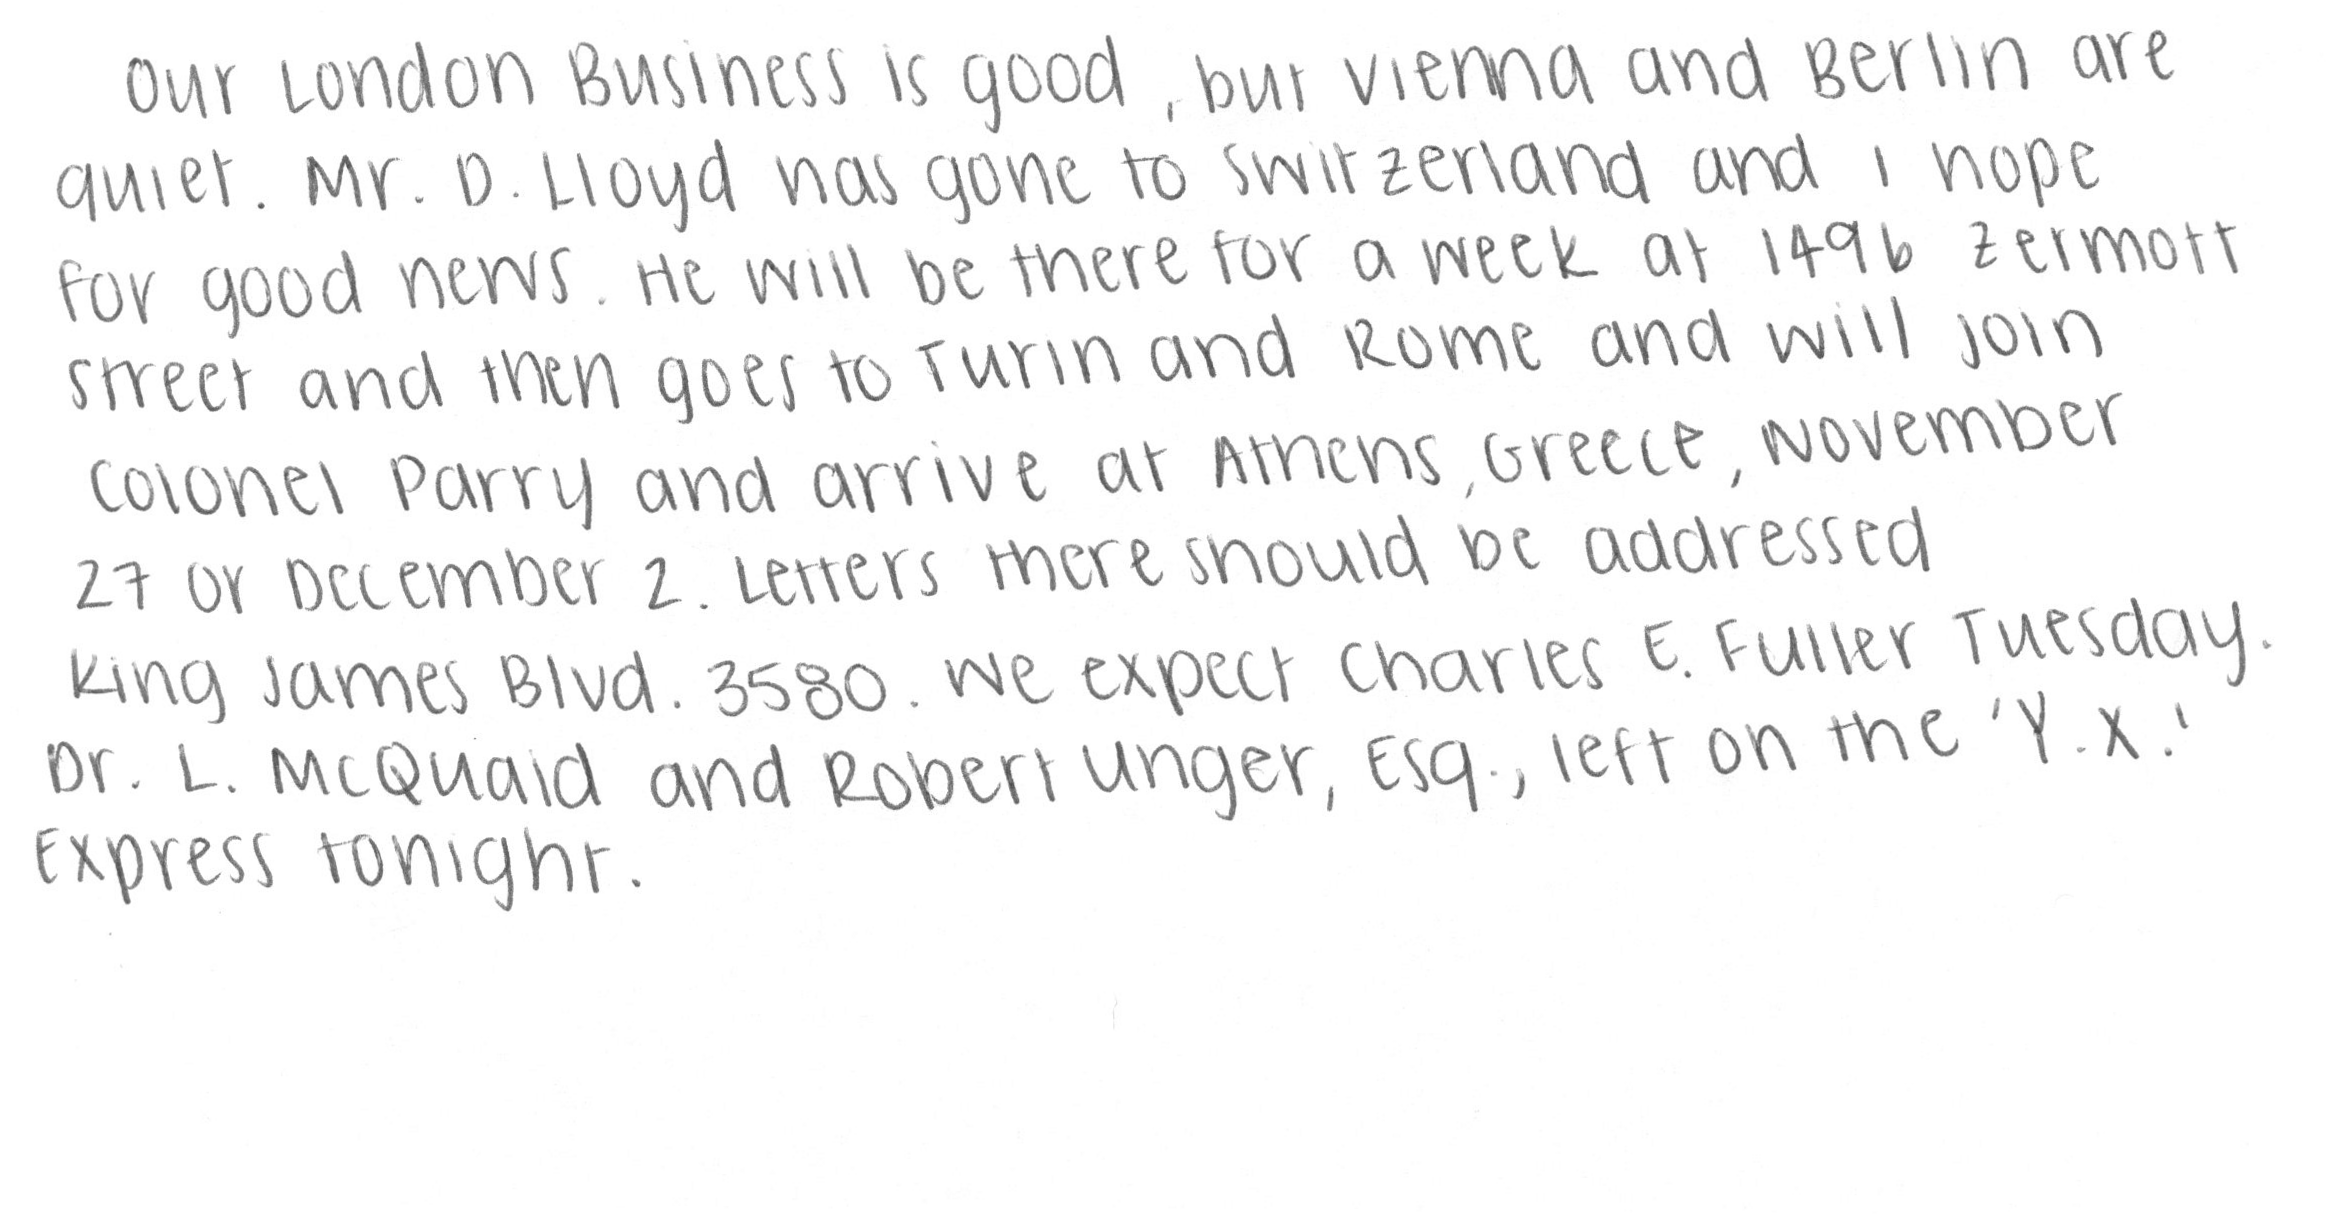 Our London Business is good, but Vienna and Berlin are
quiet. Mr. D. Lloyd has gone to Switzerland and I hope
for good news. He will be there for a week at 1496 Zermott
street and then goes to Turin and Rome and will join
Colonel Parry and arrive at Athens, Greece, November
27 or December 2. Letters there should be addressed
King James Blvd. 3580. We expect Charles E. Fuller Tuesday.
Dr. L. McQuaid and Robert Unger, Esq., left on the 'Y.X.'
Express tonight.